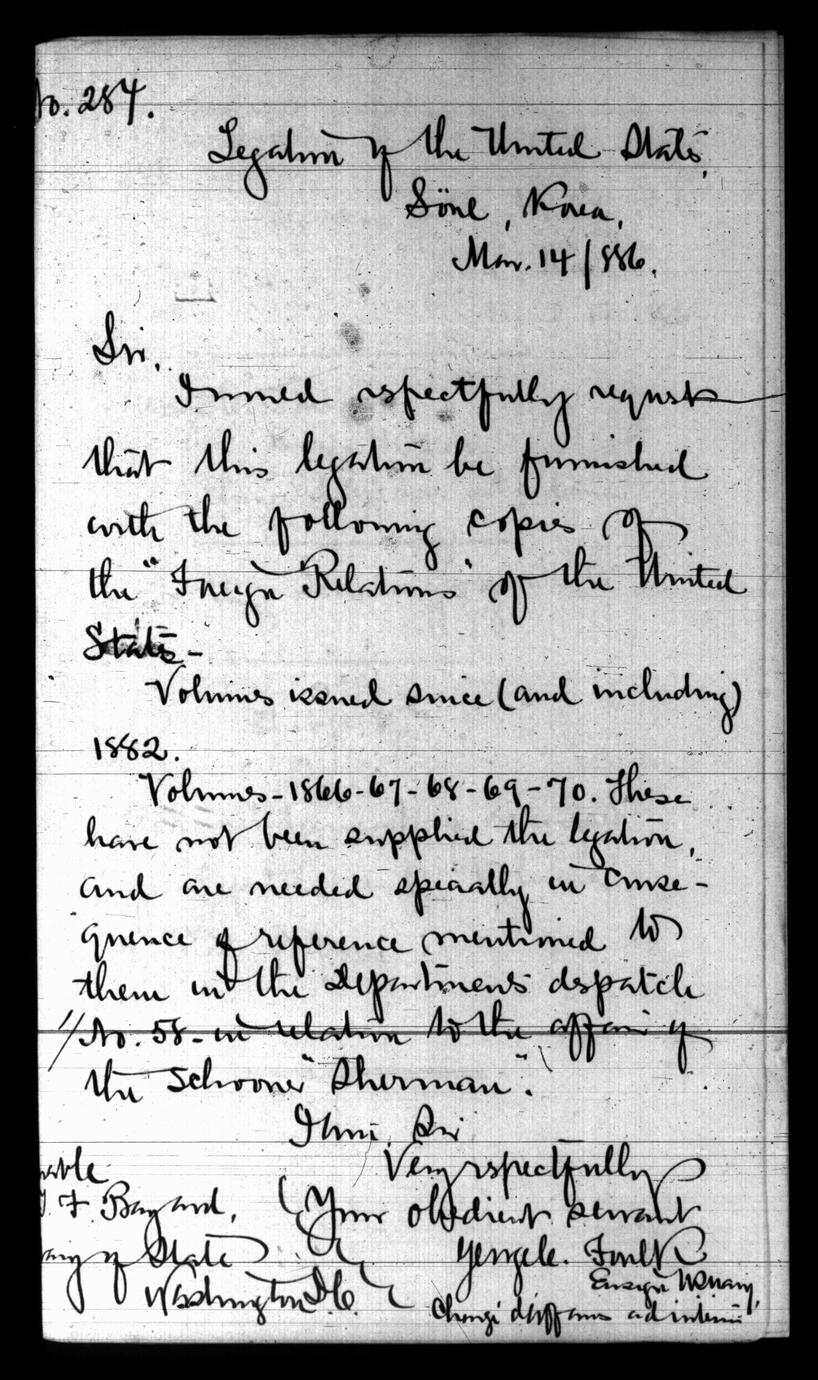 No. 284.
Legation of the United States,
Söul, Korea,
Mar. 14 / 886.
Sir,
I would respectfully request
that this legation be furnished
with the following copies of
the "Foreign Relations" of the United
States -
Volumes issued since (and including)
1882.
Volumes - 1866-67-68-69-70. These
have not been supplied the legation,
and are needed specially in conse-
quence of reference mentioned to
them in the Department's despatch
No. 58 - in relation to the affair of
the Schooner "Sherman".
I am, Sir
Very respectfully
Your obedient servant
George C. Foulk
Ensign U.S. Navy,
Chargé d'affaires ad interim
rable
F Bayard,
of State
Washington D.C.